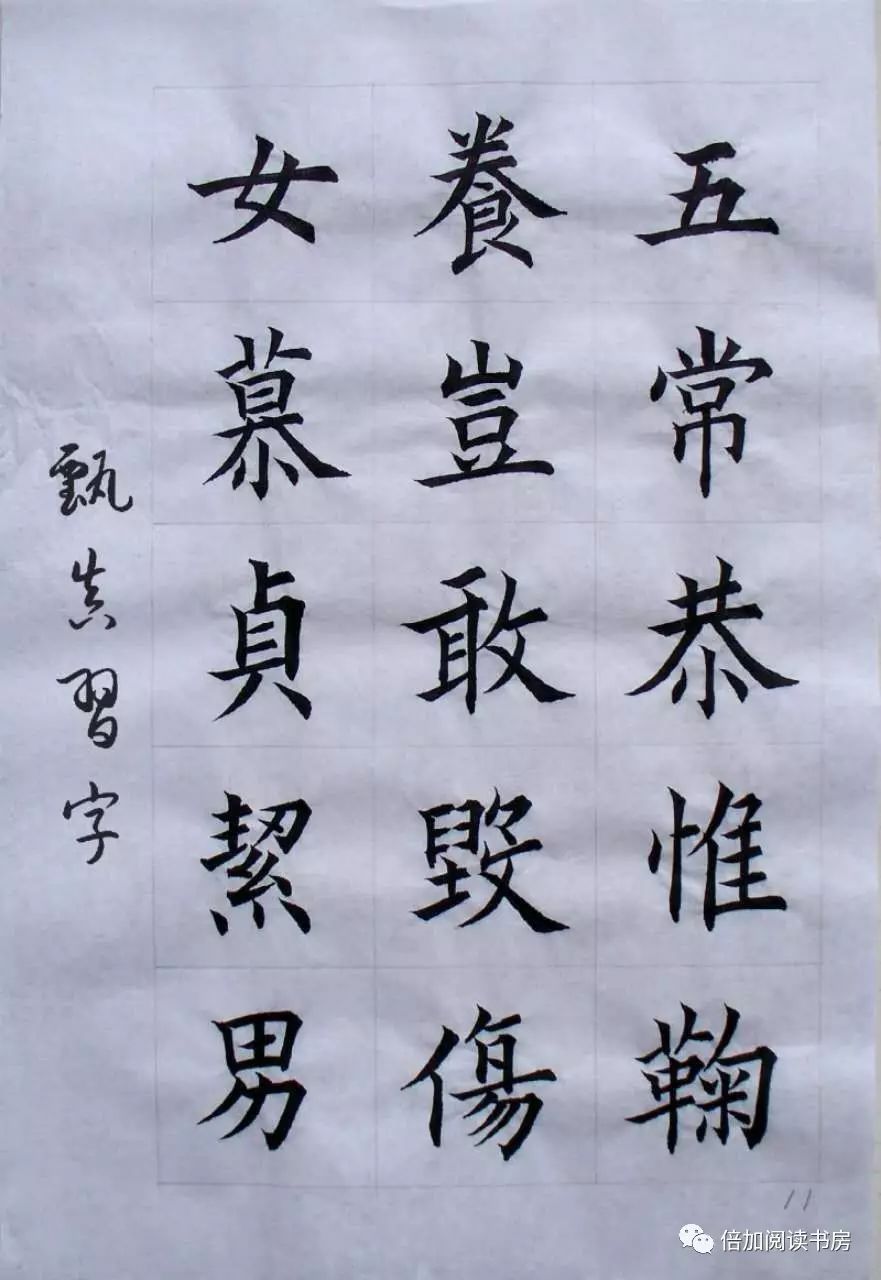 五常恭惟鞠
養豈敢毀傷
女慕貞絜男
甄真習字
11
倍加阅读书房